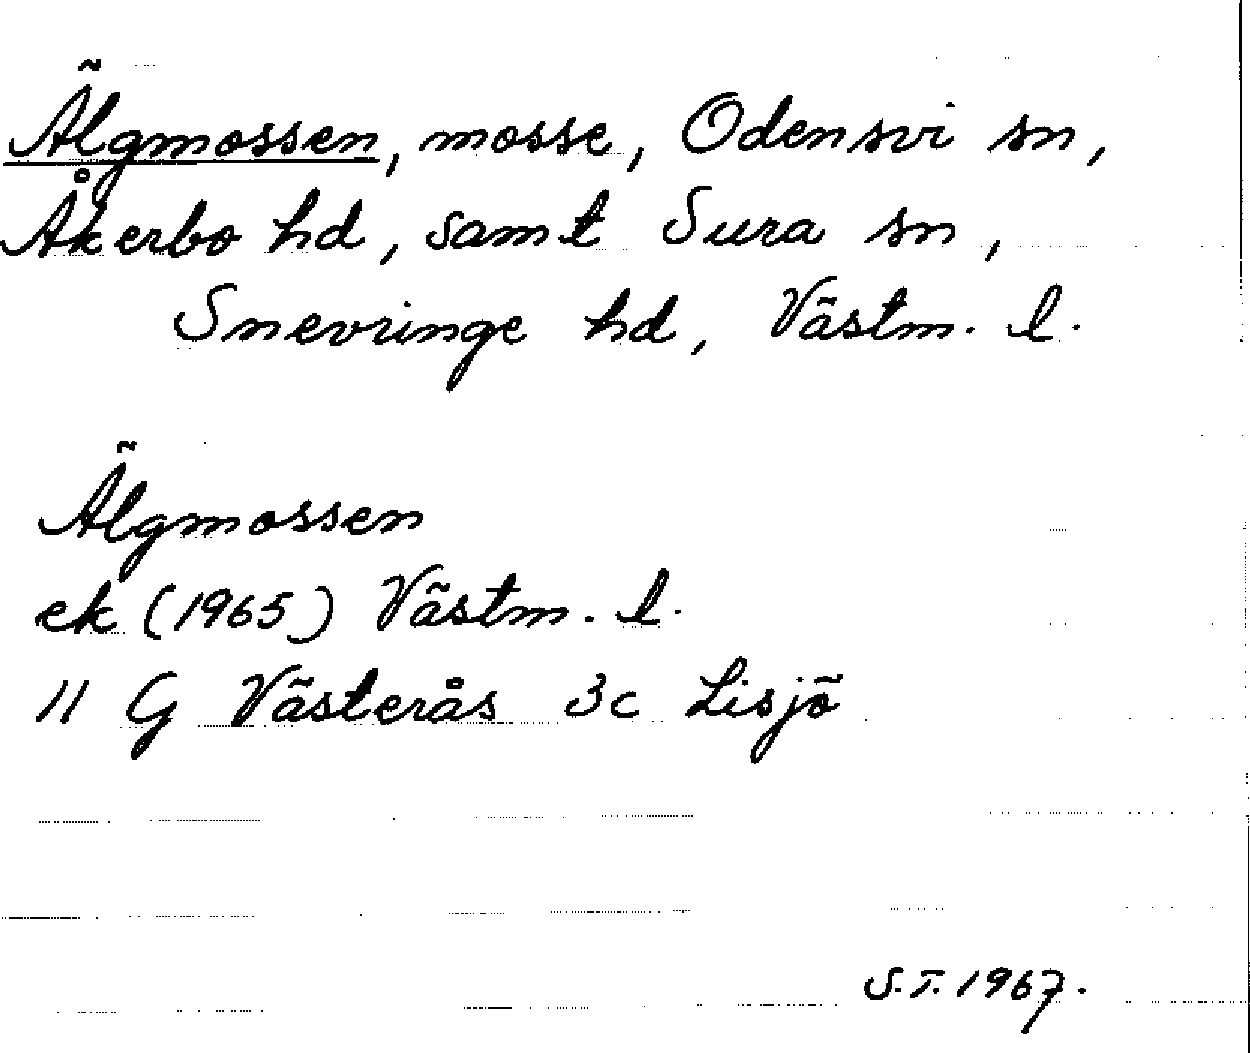 Älgmossen, mosse, Odensvi sn,
Åkerbo hd, samt Sura sn,
Snevringe hd, Västm. l.
Älgmossen
ek (1965) Västm. l.
11 G Västerås 3c Lisjö
S.T. 1967.